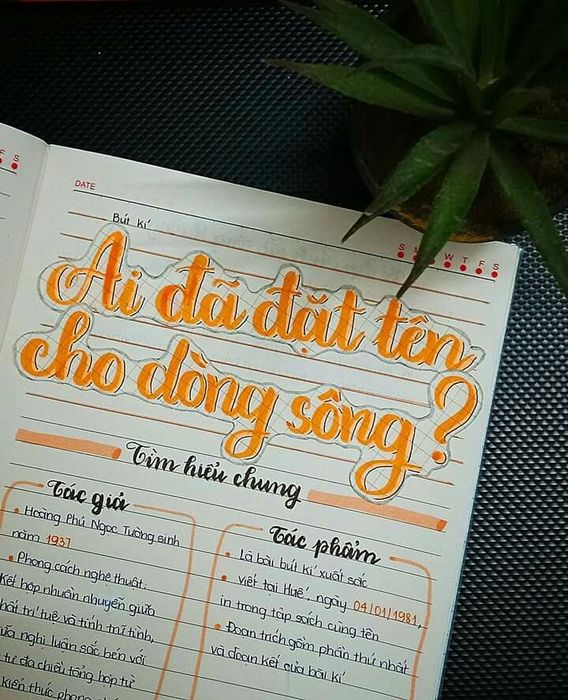 F S
DATE
S M W T F S
Bút kí
Ai đã đặt tên
cho dòng sông?
Tìm hiểu chung
Tác giả
• Hoàng Phủ Ngọc Tường sinh
năm 1937
• Phong cách nghệ thuật:
Kết hợp nhuần nhuyễn giữa
chất trí tuệ và tính trữ tình,
giữa nghị luận sắc bén với
tư duy đa chiều tổng hợp từ
kiến thức phong
Tác phẩm
• Là bài bút kí xuất sắc
• viết tại Huế, ngày 04/01/1981,
in trong tập sách cùng tên
• Đoạn trích gồm phần thứ nhất
và đoạn kết của bài kí